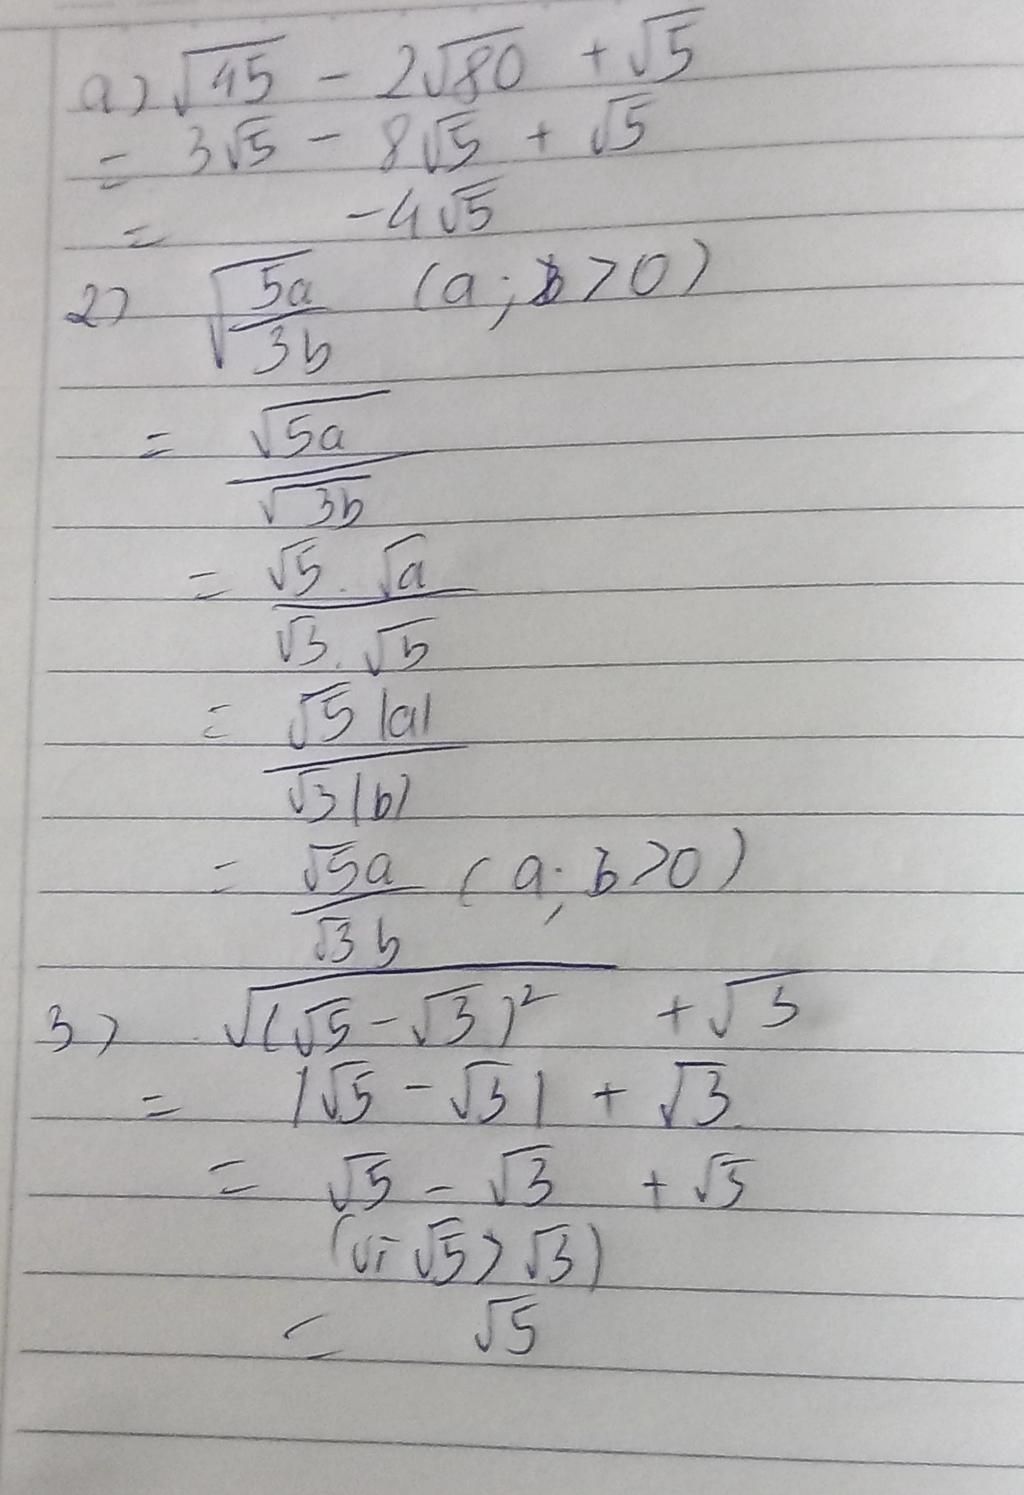 a) √45 - 2√80 + √5
= 3√5 - 8√5 + √5
= -4√5
2) √(5a/3b) (a; b > 0)
= √5a / √3b
= √5 . √a / √3 . √b
= √5 |a| / √3 |b|
= √5a / √3 b (a; b > 0)
3) √(√5 - √3)² + √3
= |√5 - √3| + √3
= √5 - √3 + √3
(vì √5 > √3)
= √5